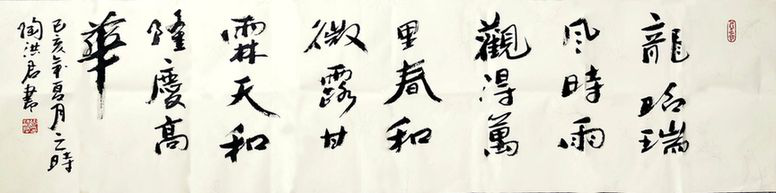 龍昭瑞
风時雨
觀得萬
里春和
微露甘
霖天和
隆慶高
華
己亥年夏月之時
陶洪君書